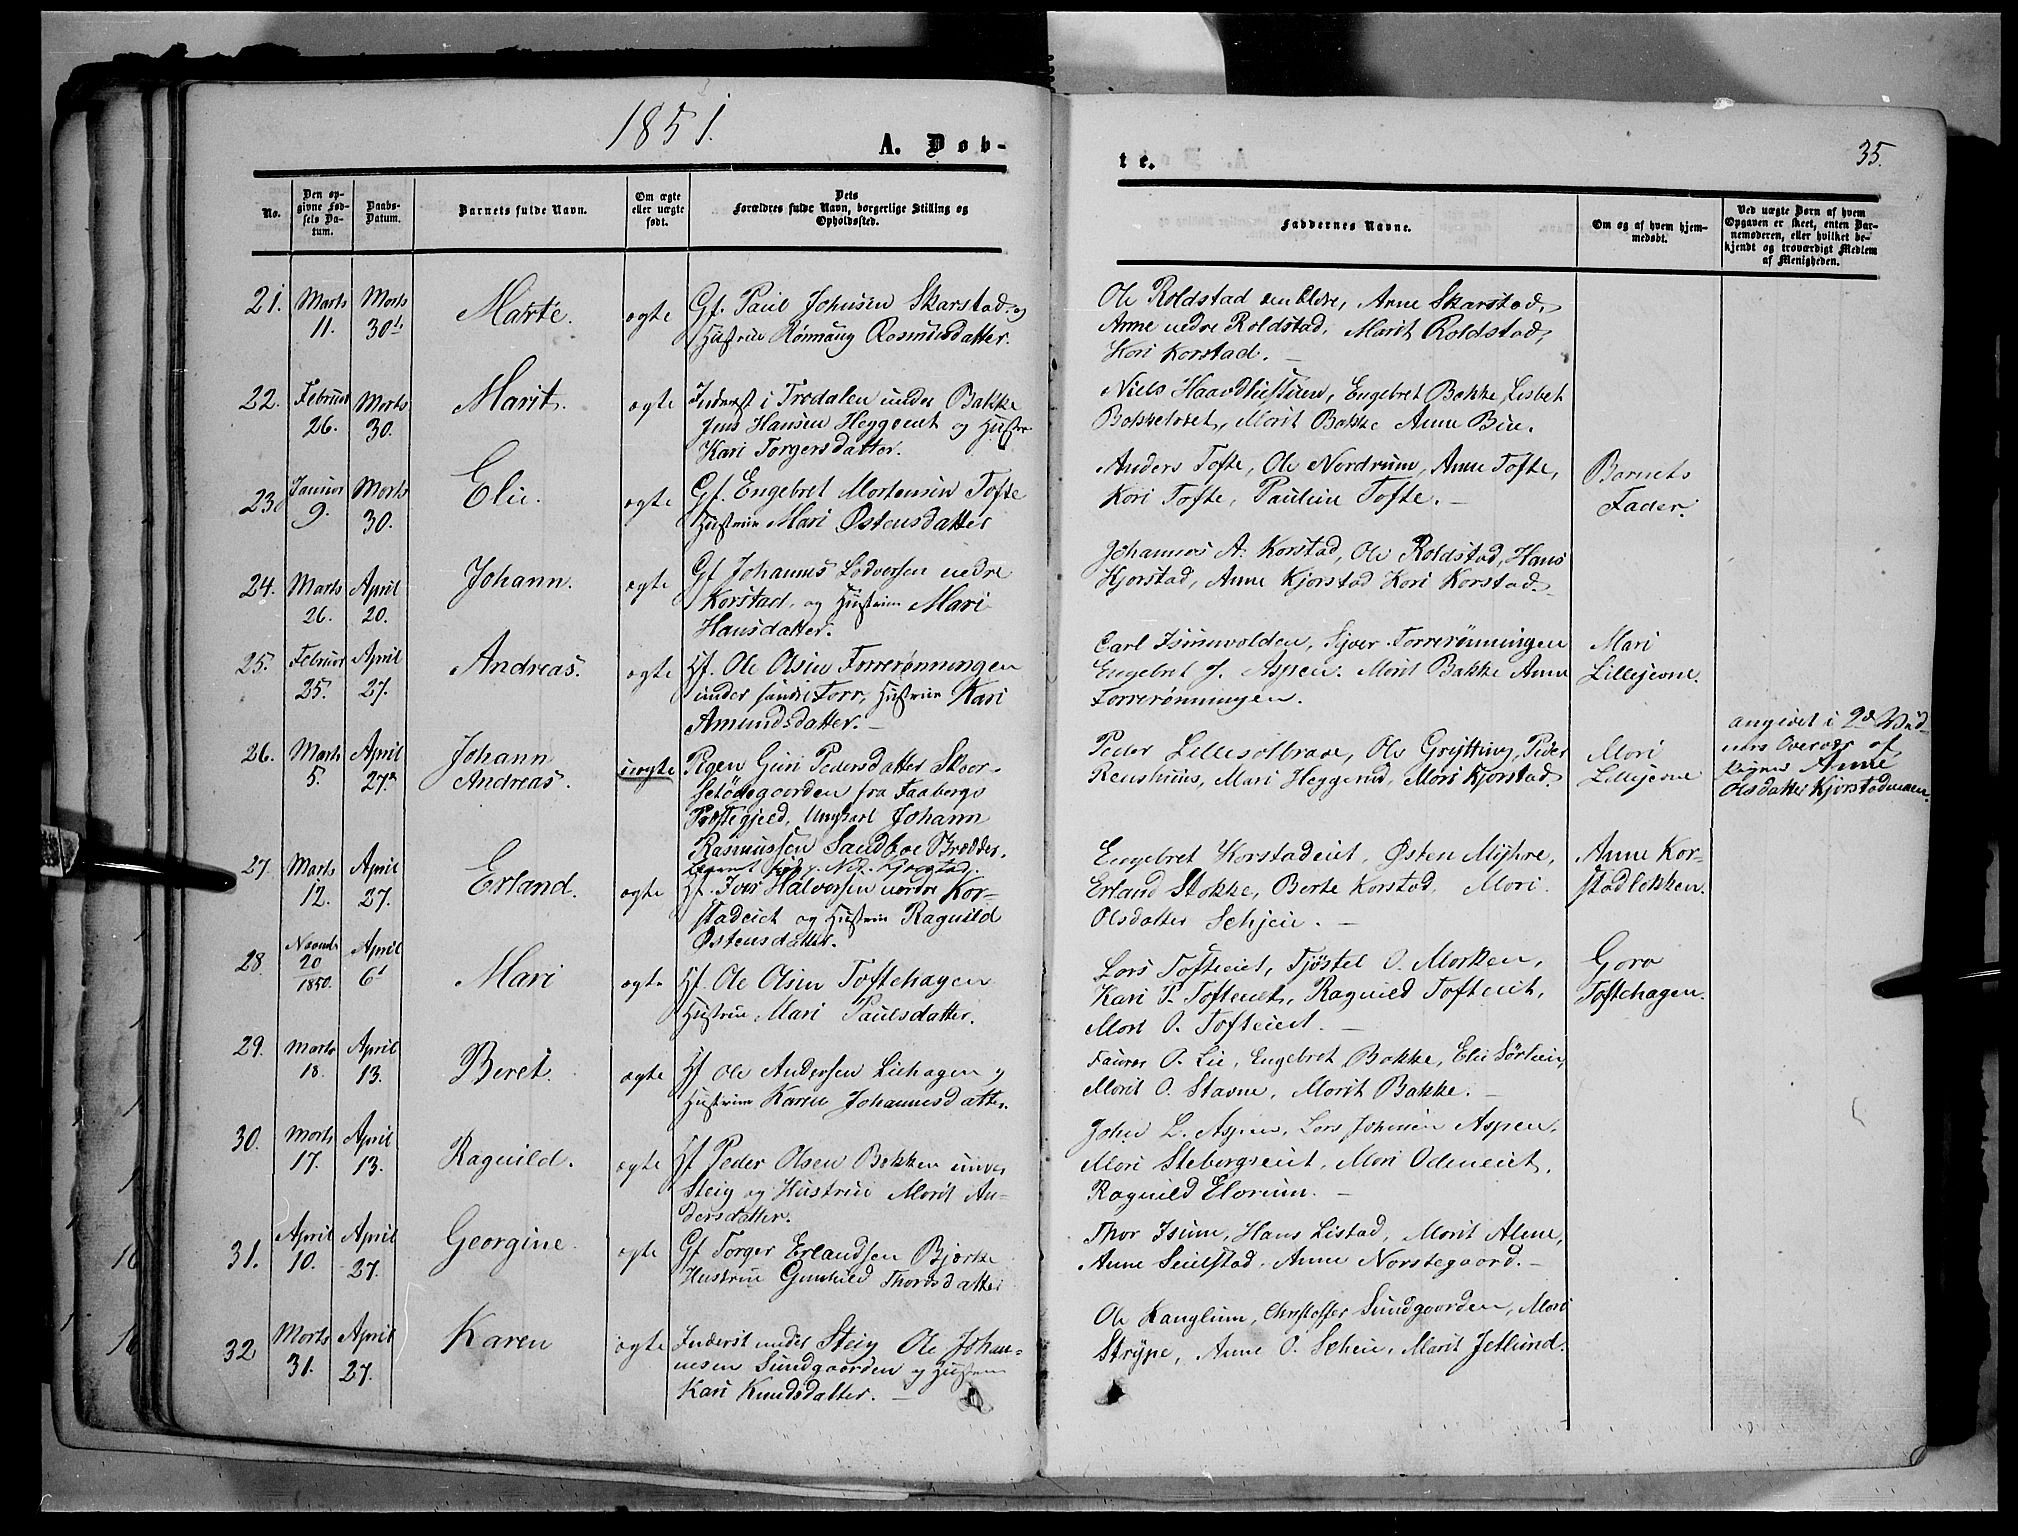 1851.
A. Døb-
No.
Den op-
givne Fød-
sels Da-
tum.
Daabs-
Datum.
Barnets fulde Navn.
Om ægte
eller uægte
født.
Dets
Forældres fulde Navn, borgerlige Stilling og
Opholdssted.
21. Marts 11. Marts 30te Marte. ægte Gf. Paul Johnsen Skarstad og
Hustrue Rønnaug Rasmusdatter.
22. Februar 26. Marts 30. Marit. ægte Inderst i Trodalen under Bakke
Jens Hansen Heggeriet og Hustrue
Kari Torgersdatter.
23. Januar 9. Marts 30. Elie. ægte Gf. Engebret Mortensen Tofte
Hustrue Mari Østensdatter
24. Marts 26. April 20. Johann. ægte Gf Johannes Lodversen nedre
Korstad, og Hustrue Mari
Hansdatter.
25. Februar 25. April 27. Andreas. ægte Hf. Ole Olsen Forrerønningen
under Forr, Hustrue Kari
Amundsdatter.
26. Marts 5. April 27. Johann
Andreas. uægte Pigen Guri Pedersdatter Skaar-
setødegaarden fra Faabergs
Præstegjeld, Ungkarl Johann
Rasmussen Sandboe
27. Marts 12. April 27. Erland. ægte Hf. Iver Halvorsen nordre Kor-
stadeiet og Hustrue Ragnild
Østensdatter.
28. Novemb. 20 1850. April 6 Mari ægte Hf. Ole Olsen Toftehagen
Hustrue Mari Paulsdatter.
29. Marts 18. April 13. Beret. ægte Hf Ole Andersen Liehagen og
Hustrue Karen Johannesdatter.
30. Marts 17. April 13. Ragnild. ægte Hf Peder Olsen Bakken under
Steig og Hustrue Marit An-
dersdatter.
31. April 10. April 27. Georgine. ægte Gf Torger Erlandsen Bjørke
Hustrue Gunhild Thordsdatter
32 Marts 31. April 27. Karen ægte Inderst under Steig Ole Johan-
nesen Sundgaarden og Hustrue
Kari Knudsdatter.
te.
35.
Faddernes Navne.
Om og af hvem hjem-
medøbt.
Ved uægte Børn af hvem
Opgaven er skeet, enten Bar-
nemoderen, eller hvilket be-
kjendt og troværdigt Medlem
af Menigheden.
Ole Roldstad Arne Skarstad,
Anne nedre Roldstad, Marit Roldstad,
Kari Korstad.
Niels Engebret Bakke, Lisbet
Marit Bakke Anne
Anders Tofte, Ole Nordrum, Anne Tofte, Barnets
Kari Tofte, Pauline Tofte. Fader.
Johannes A. Korstad, Ole Roldstad, Hans
Kjorstad, Anne Kjorstad Kari Korstad.
Carl Isumvolden, Sjver Forrerønningen Mari
Engebret J. Aspen. Marit Bakke Anne Lillejevne.
Forrerønningen.
Peder Lillesolbraae, Ole Grytting, Peder Mari
Renshuus, Mari Heggerud, Mari Kjorstad. Lillejevne
angivet i 2 Vid-
ners Overvær af
Pigen Anne
Olsdatter Kjorstadmoen.
Engebret Korstadeiet, Østen Myhre, Anne Kor-
Erland Stokke, Berte Korstad. Mari stadløkken.
Olsdatter Schjeie.
Lars Tofteeiet, Tjøstel O. Morken, Goro
Kari P. Tofteeiet, Ragnild Tofteeiet, Toftehagen.
Mari O. Tofteeiet.
O. Lie, Engebret Bakke, Elie Sørlien,
Marit O. Stavne, Marit Bakke.
John L. Aspen, Lars Johnsen Aspen,
Mari Stebergseiet, Mari Odeneiet.
Ragnild Elorum.
Thor Isum, Hans Listad, Marit Alme,
Anne Seielstad, Anne Norstegaard.
Ole Langlum, Christoffer Sundgaarden, Mari
Strype, Anne O. Scheie, Marit Jetlund.